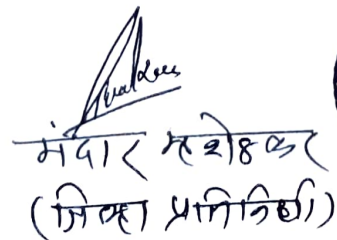 मंदार म्हशेळकर
(जिल्हा प्रतिनिधी)